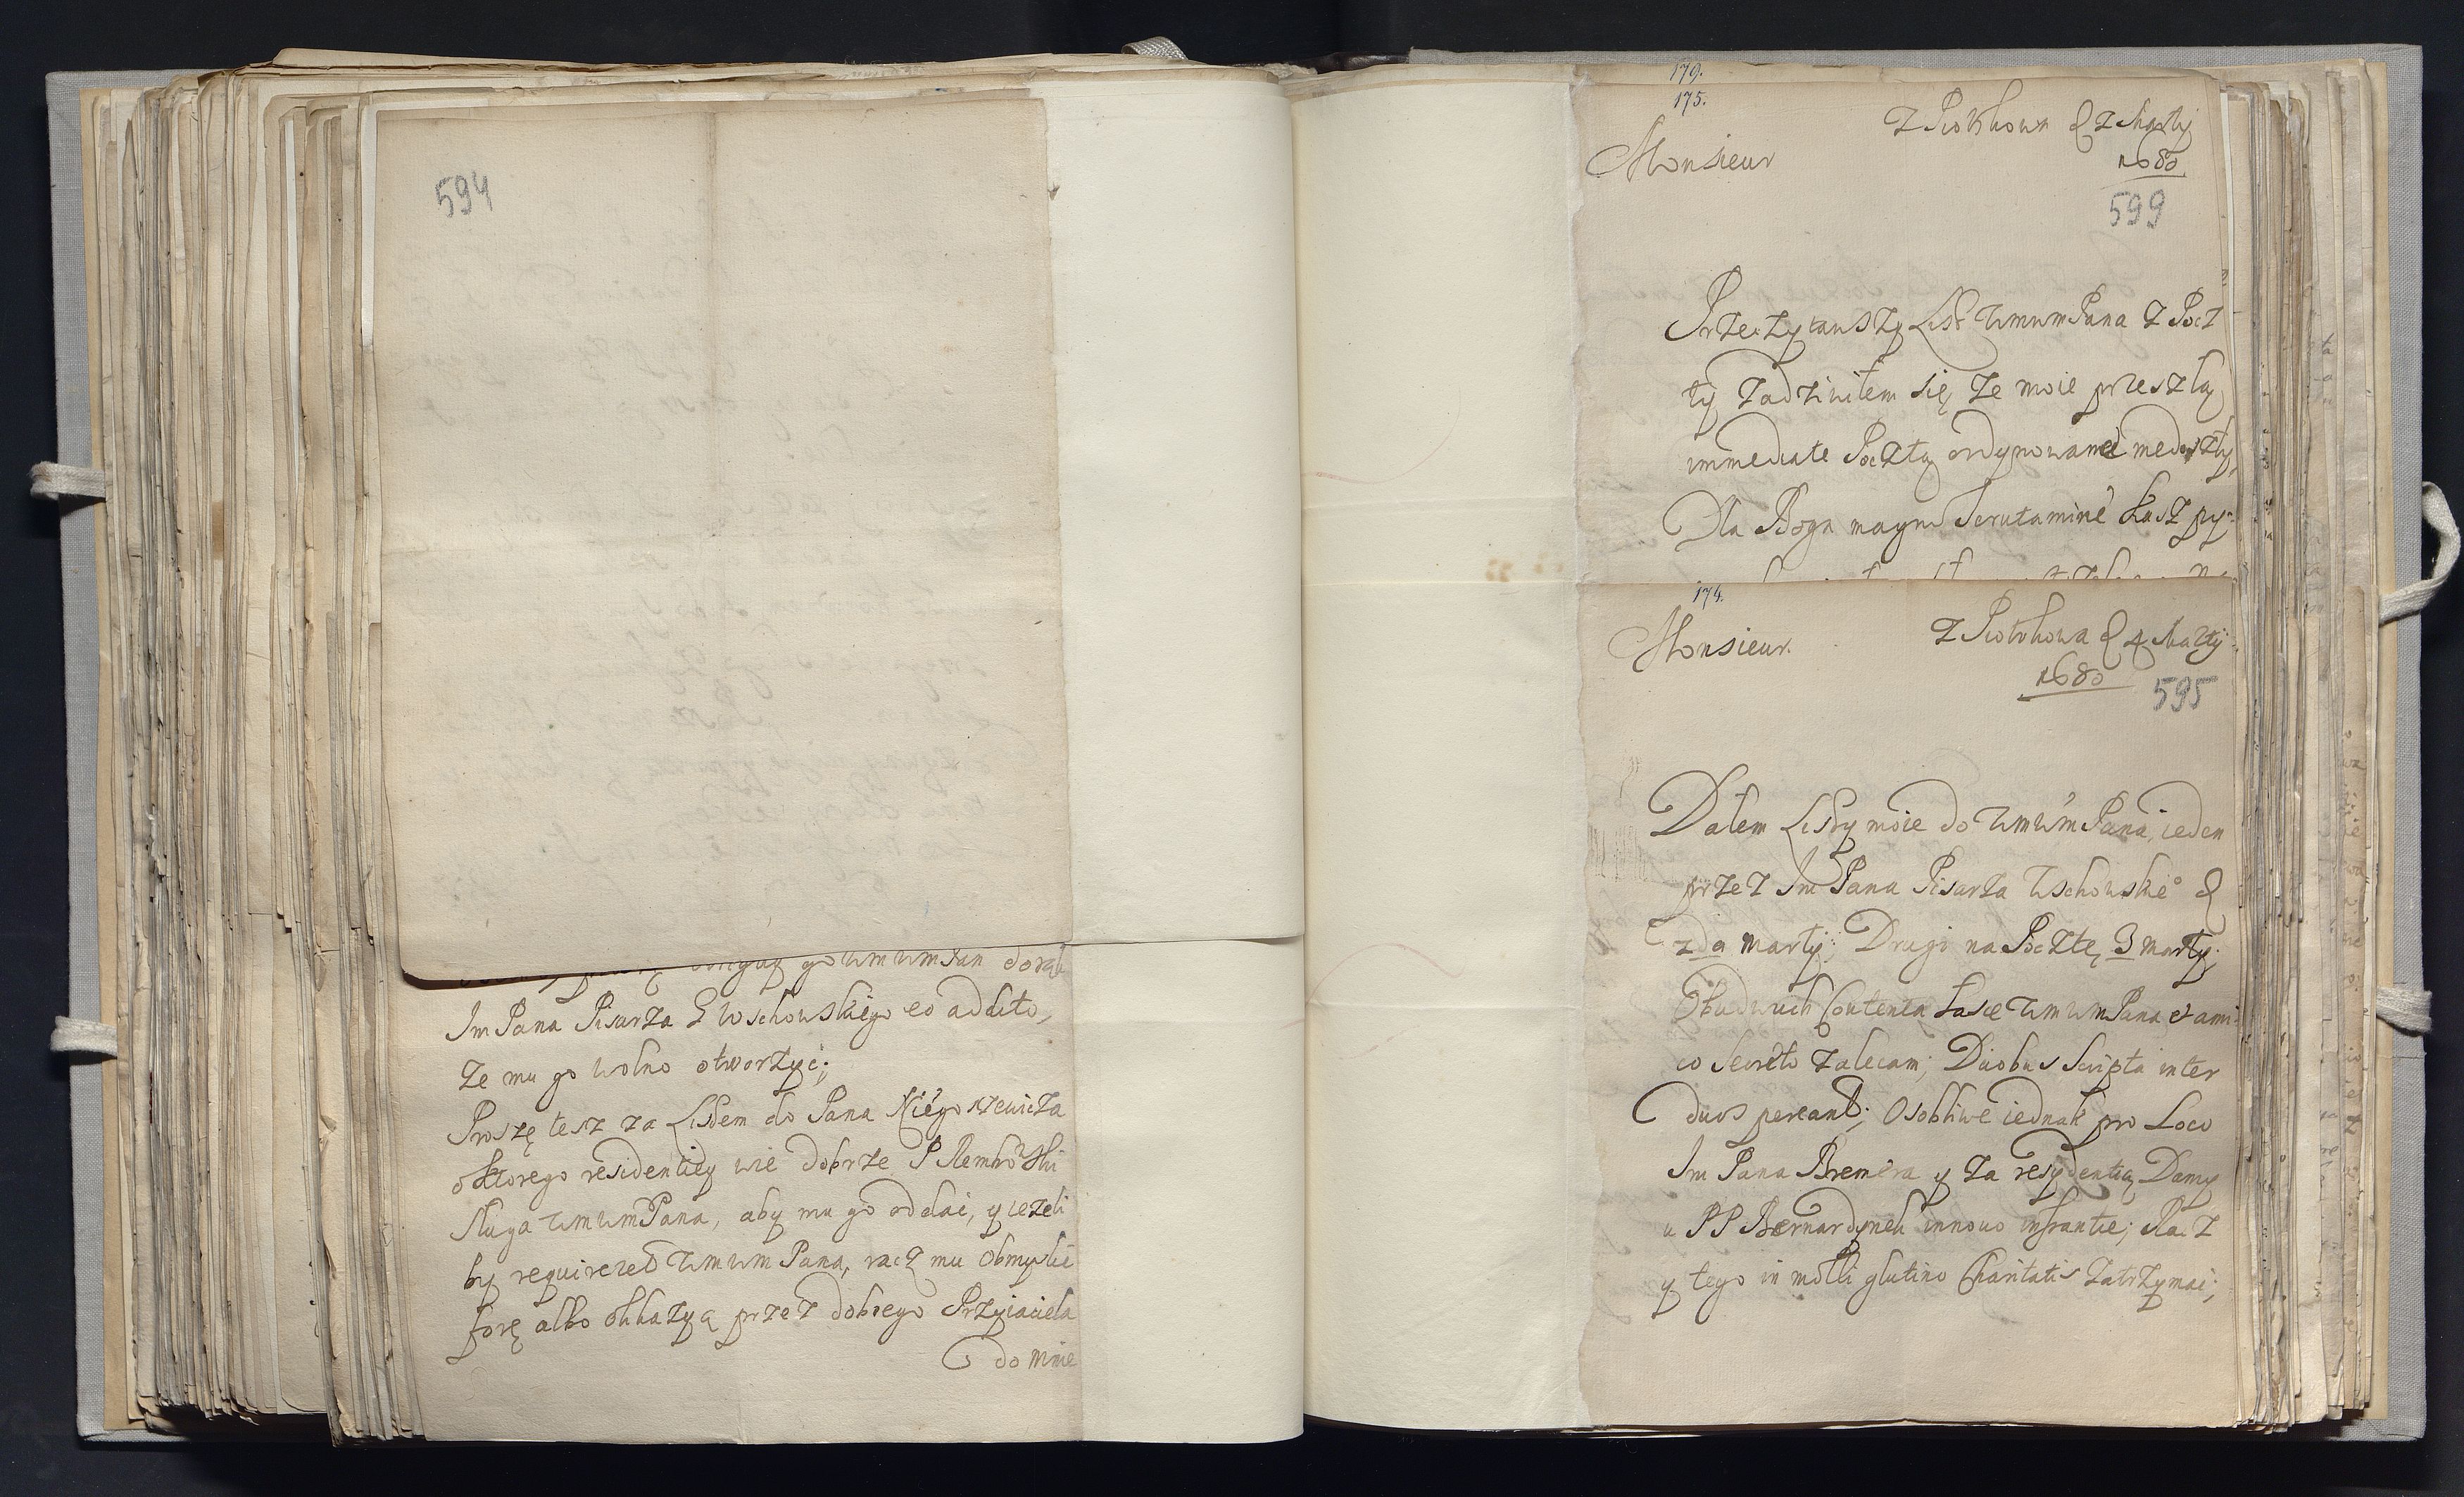 594
go WmWmPan
Jm Pana Pisarza Wschowskiego eo addito,
ze mu go wolno otworzyć;
Proszę tesz za Listem do Pana
oktorego residentiey wie dobrze P
sługa WmWmPana, aby mu go oddai, y iezeli
by requireret WmWm Pana, racz mu obmyslić
forę albo okkazyą przez dobrego Przyiaciela
do mnie
179.
175.
Z Piotrkowa d 2 Martij
Monsieur
1680
599
Przeczytawszy List WmWmPana z Pocz
ty zadziwiłem się, ze moie przeszłą
immediate Pocztą ordynowane niedoszły,
Dla Boga magno Scrutamine kasz py-
174.
Monsieur.
Z Piotrkowa d 4 Martij
1680
595
Dałem Listy moie do WmWm Pana, ieden
przez Jm Pana Pisarza Wschowskieo d
2da martij; Drugi na Pocztę 3 martij.
Obudwuch Contenta Łasce WmWmPana et ami-
co Secreto zalecam; Duobus Scripta inter
duos pereant; Osobliwe iednak pro Loco
Jm Pana Bremera y za resydentią Damy
u PP Bernardynek innouo instantie; Racz
y tego in molli glutino Charitatis zatrzymać;